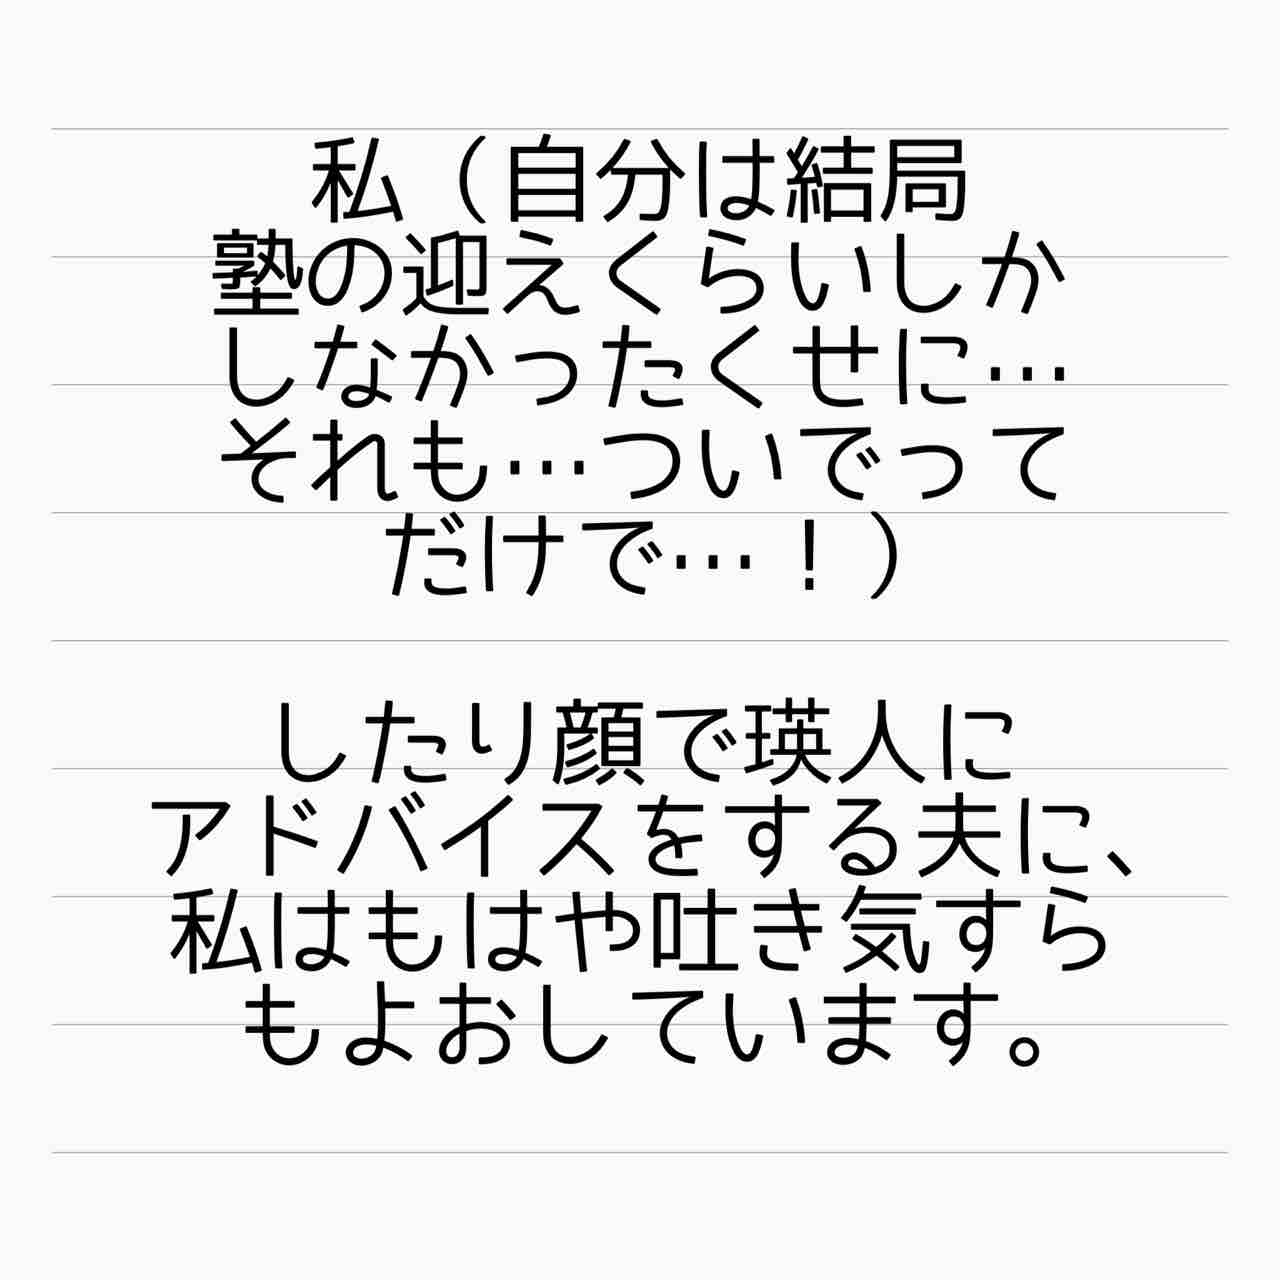 私（自分は結局
塾の迎えくらいしか
しなかったくせに…
それも…ついでって
だけで…！）
したり顔で瑛人に
アドバイスをする夫に、
私はもはや吐き気すら
もよおしています。